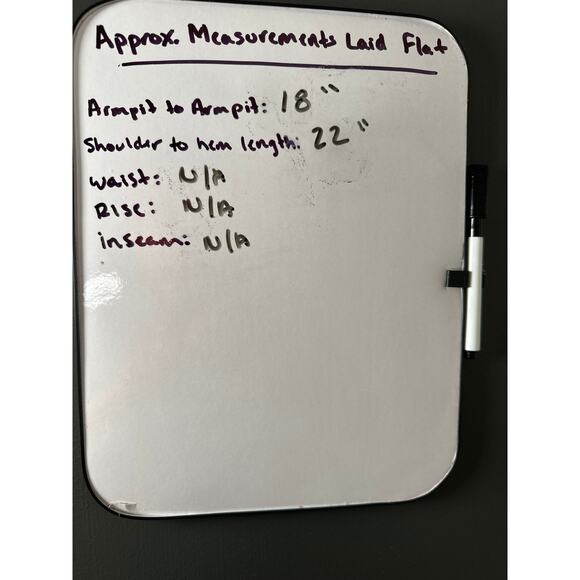 Approx. Measurements Laid Flat
Armpit to Armpit: 18"
Shoulder to hem length: 22"
waist: N/A
Rise: N/A
inseam: N/A